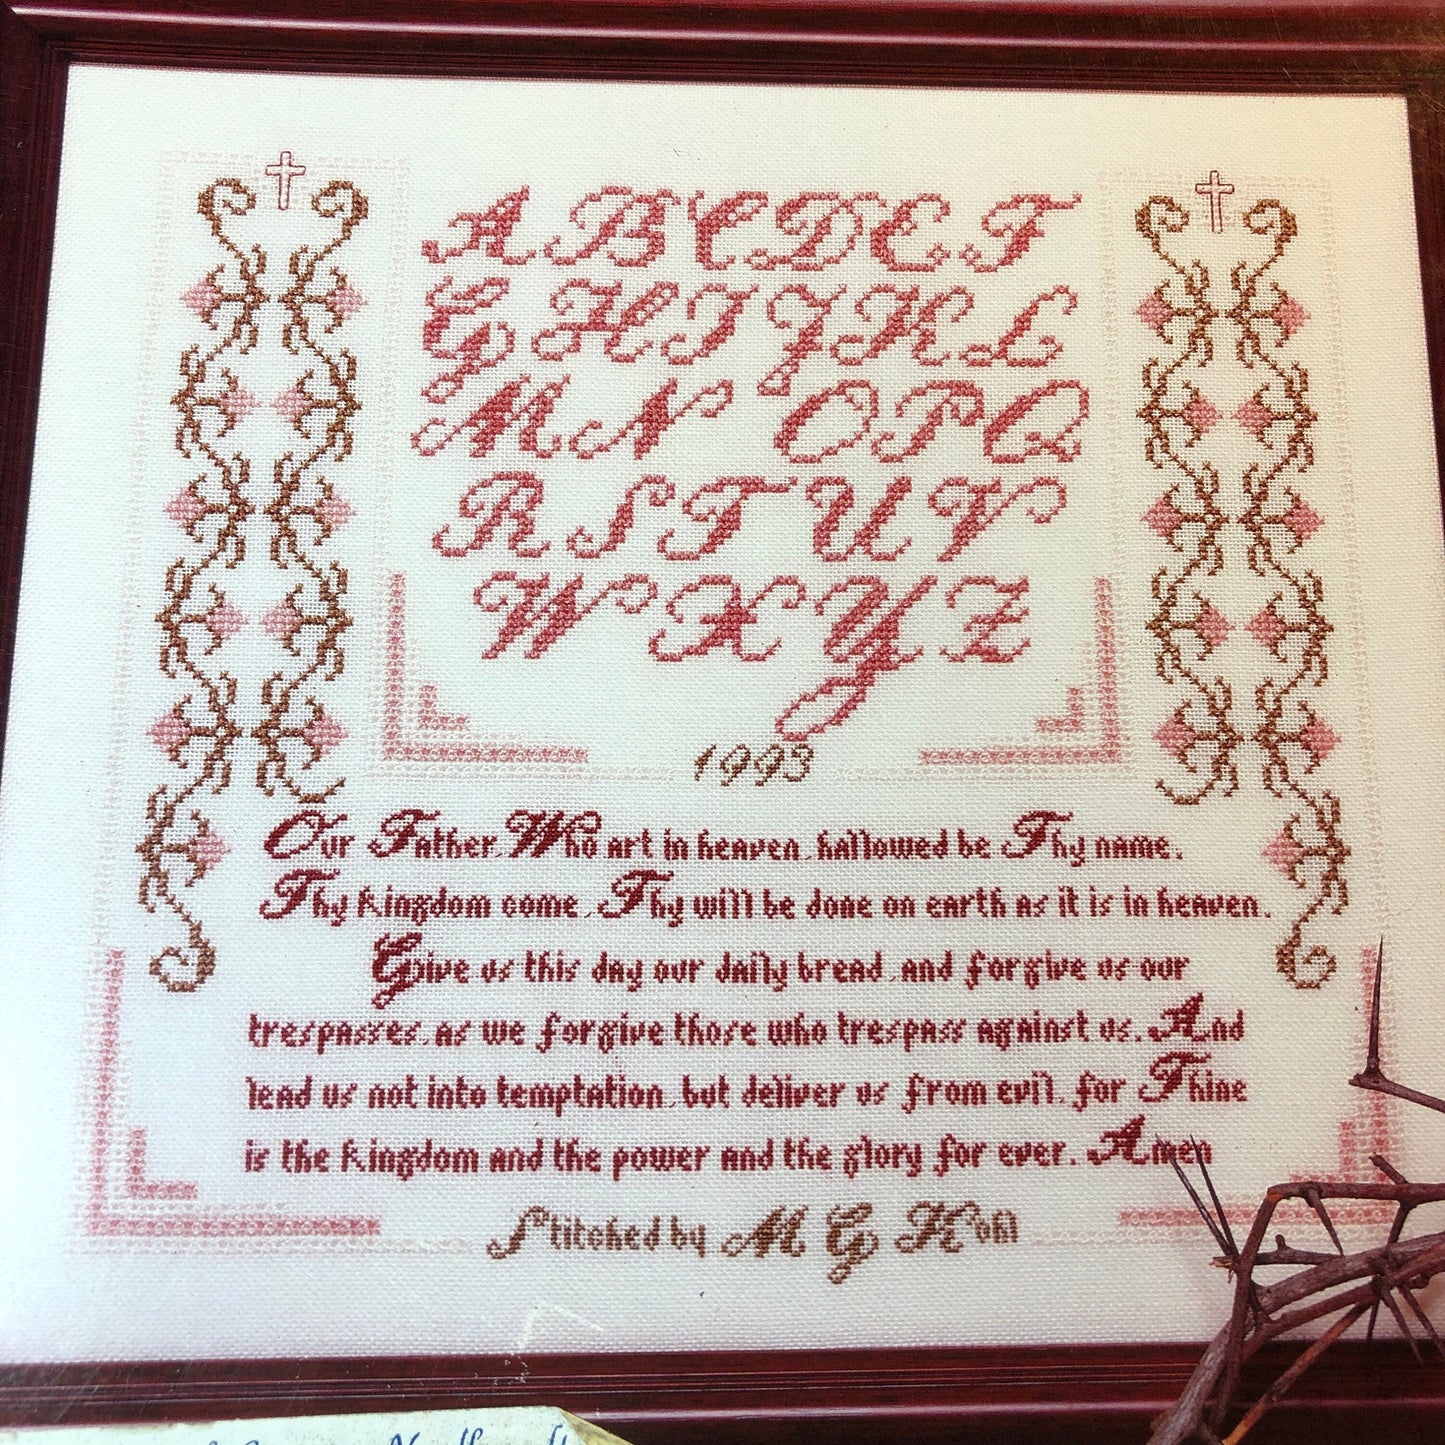 A B C D E F
G H I J K L
M N O P Q
R S T U V
W X Y Z
1993
Our Father, Who art in heaven, hallowed be Thy name.
Thy kingdom come, Thy will be done on earth as it is in heaven.
Give us this day our daily bread, and forgive us our
trespasses, as we forgive those who trespass against us. And
lead us not into temptation, but deliver us from evil, for Thine
is the kingdom and the power and the glory for ever. Amen
Stitched by M G Kohl